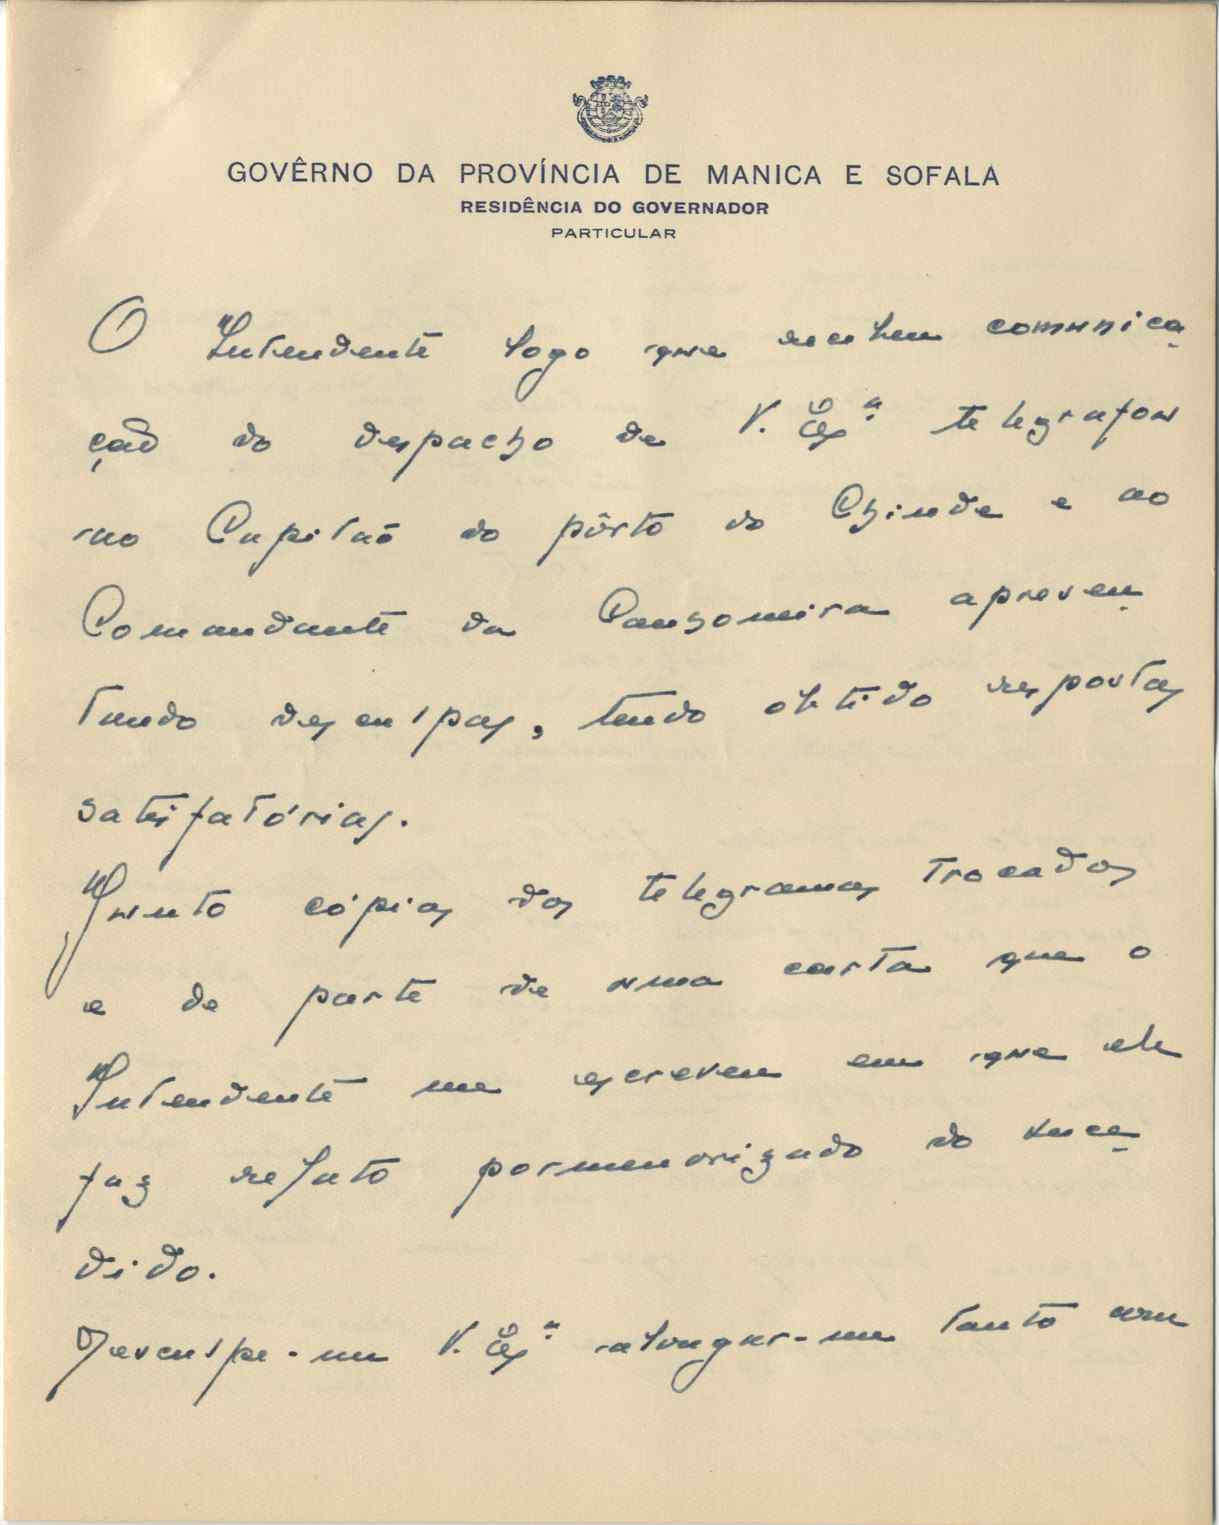 GOVÊRNO DA PROVÍNCIA DE MANICA E SOFALA
RESIDÊNCIA DO GOVERNADOR
PARTICULAR
O Intendente logo que recebeu comunica
ção do despacho de V. Exª telegrafou
ao Capitão do pôrto do Chinde e ao
Comandante da Canhoneira apresen
tando desculpas, tendo obtido respostas
satisfatórias.
Junto cópias dos telegramas trocados
e de parte de uma carta que o
Intendente me escreveu em que ele
faz relato pormenorizado do suce
dido.
Desculpe-me V. Exª alongar-me tanto com